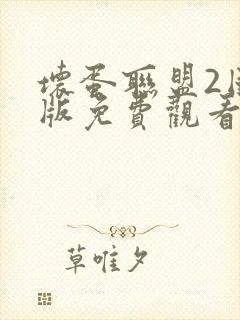 壞蛋聯盟2
版免費觀看
草唯夕